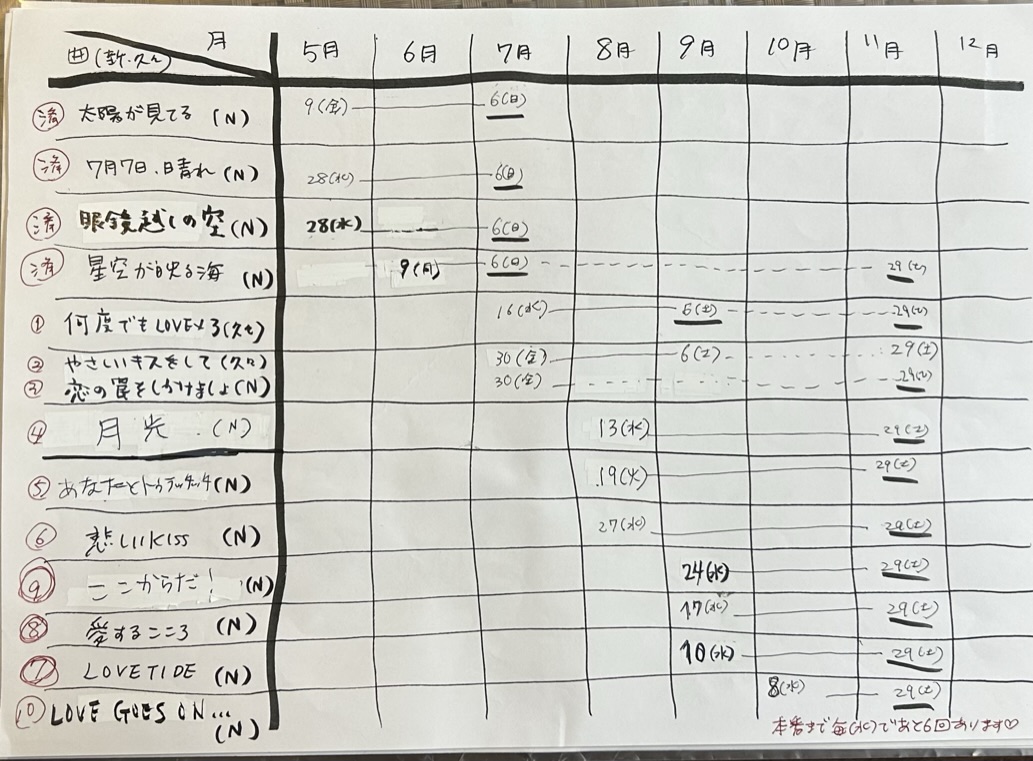 月 5月 6月 7月 8月 9月 10月 11月 12月
曲(新・久々)
済 太陽が見てる (N) 9(金) 6(日)
済 7月7日、晴れ (N) 28(水) 6(日)
済 眼鏡越しの空 (N) 28(水) 6(日)
済 星空が映る海 (N) 9(月) 6(日) 29(土)
① 何度でもLOVE×3(久々) 16(水) 6(土) 29(土)
② やさしいキスをして(久々) 30(金) 6(土) 29(土)
③ 恋の罠をしかけましょ(N) 30(金) 29(土)
④ 月光 (N) 13(水) 29(土)
⑤ あなたとトゥラッタッタ(N) 19(火) 29(土)
⑥ 悲しいKISS (N) 27(水) 29(土)
⑨ ここからだ! (N) 24(水) 29(土)
⑧ 愛するこころ (N) 17(水) 29(土)
⑦ LOVETIDE (N) 10(水) 29(土)
⑩ LOVE GOES ON… 8(水) 29(土)
(N)
本番まで毎(水)であと6回あります♡